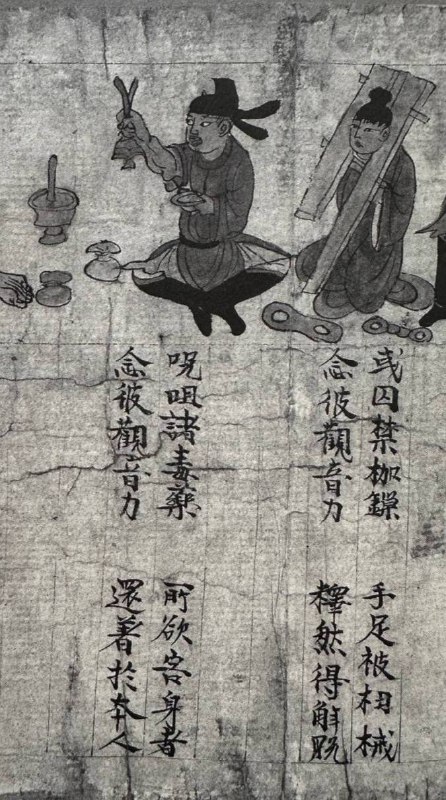 或囚禁枷鏁 手足被杻械
念彼觀音力 釋然得觧脱
呪咀諸毒藥 所欲害身者
念彼觀音力 還著於本人